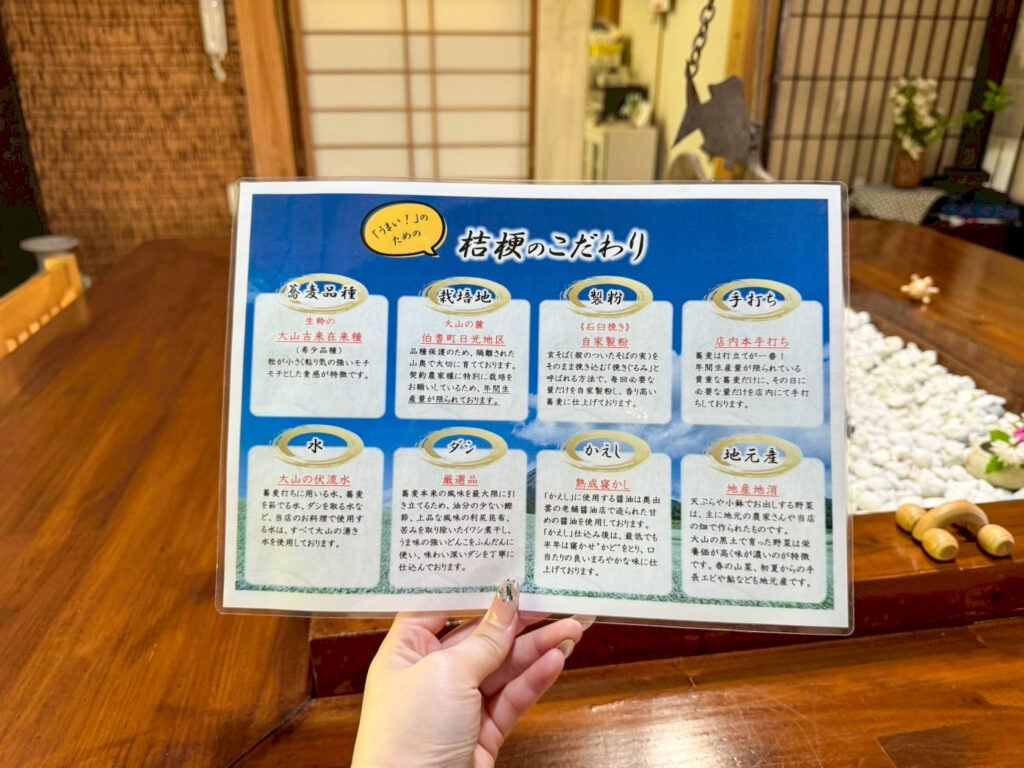 「うまい！」の
ための
桔梗のこだわり
蕎麦品種
生粋の
大山古来在来種
（希少品種）
粒が小さく粘り気の強いモチ
モチとした食感が特徴です。
栽培地
大山の麓
伯耆町日光地区
品種保護のため、隔離された
山奥で大切に育てております。
契約農家様に特別に栽培を
お願いしているため、年間生
産量が限られております。
製粉
《石臼挽き》
自家製粉
玄そば(殻のついたそばの実)を
そのまま挽き込む「挽きぐるみ」と
呼ばれる方法で、毎回必要な
量だけを自家製粉し、香り高い
蕎麦に仕上げております。
手打ち
店内本手打ち
蕎麦は打立てが一番！
年間生産量が限られている
貴重な蕎麦だけに、その日に
必要な量だけを店内にて手打
ちしております。
水
大山の伏流水
蕎麦打ちに用いる水、蕎麦
を茹でる水、ダシを取る水な
ど、当店のお料理で使用す
る水は、すべて大山の湧き
水を使用しております。
ダシ
厳選品
蕎麦本来の風味を最大限に引
き立てるため、油分の少ない鰹
節、上品な風味の利尻昆布、
苦みを取り除いたイワシ煮干し、
うま味の強いどんこをふんだんに
使い、味わい深いダシを丁寧に
仕込んでおります。
かえし
熟成寝かし
「かえし」に使用する醤油は奥出
雲の老舗醤油店で造られた甘
めの醤油を使用しております。
「かえし」仕込み後は、最低でも
半年は寝かせ“かど”をとり、口
当たりの良いまろやかな味に仕
上げております。
地元産
地産地消
天ぷらや小鉢でお出しする野菜
は、主に地元の農家さんや当店
の畑で作られたものです。
大山の黒土で育った野菜は栄
養価が高く味が濃いのが特徴
です。春の山菜、初夏からの手
長エビや鮎なども地元産です。